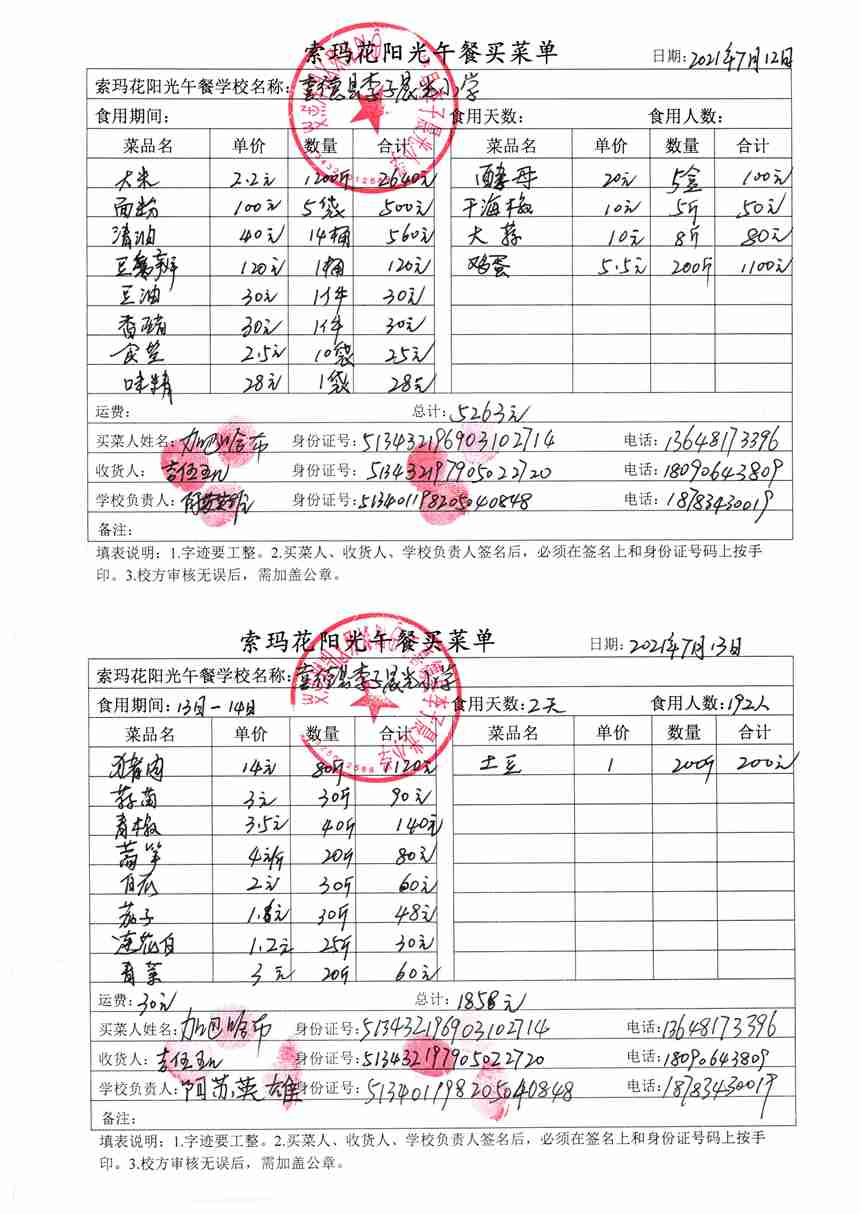 索玛花阳光午餐买菜单 日期:2021年7月12日
索玛花阳光午餐学校名称:喜德县李子晨光小学
食用期间: 食用天数: 食用人数:
菜品名 单价 数量 合计 菜品名 单价 数量 合计
大米 2.2元 1200斤 2640元 酵母 20元 5盒 100元
面粉 100元 5袋 500元 干海椒 10元 5斤 50元
清油 40元 14桶 560元 大蒜 10元 8斤 80元
豆瓣 120元 1桶 120元 鸡蛋 5.5元 200斤 1100元
豆油 30元 1件 30元
香醋 30元 1件 30元
食盐 2.5元 10袋 25元
味精 28元 1袋 28元
运费: 总计:5263元
买菜人姓名:加巴哈布 身份证号:513432196903102714 电话:13648173396
收货人: 身份证号:513432197905022720 电话:18090643809
学校负责人: 身份证号:513401198205040848 电话:18783430019
备注:
填表说明：1.字迹要工整。2.买菜人、收货人、学校负责人签名后，必须在签名上和身份证号码上按手
印。3.校方审核无误后，需加盖公章。
索玛花阳光午餐买菜单 日期:2021年7月13日
索玛花阳光午餐学校名称:喜德县李子晨光小学
食用期间:13日-14日 食用天数:2天 食用人数:192人
菜品名 单价 数量 合计 菜品名 单价 数量 合计
猪肉 14元 80斤 1120元 土豆 1 200斤 200元
蒜苗 3元 30斤 90元
青椒 3.5元 40斤 140元
莴笋 4元/斤 20斤 80元
白瓜 2元 30斤 60元
茄子 1.6元 30斤 48元
莲花白 1.2元 25斤 30元
青菜 3元 20斤 60元
运费:30元 总计:1858元
买菜人姓名:加巴哈布 身份证号:513432196903102714 电话:13648173396
收货人: 身份证号:513432197905022720 电话:18090643809
学校负责人:阿苏英雄 身份证号:513401198205040848 电话:18783430019
备注:
填表说明：1.字迹要工整。2.买菜人、收货人、学校负责人签名后，必须在签名上和身份证号码上按手
印。3.校方审核无误后，需加盖公章。